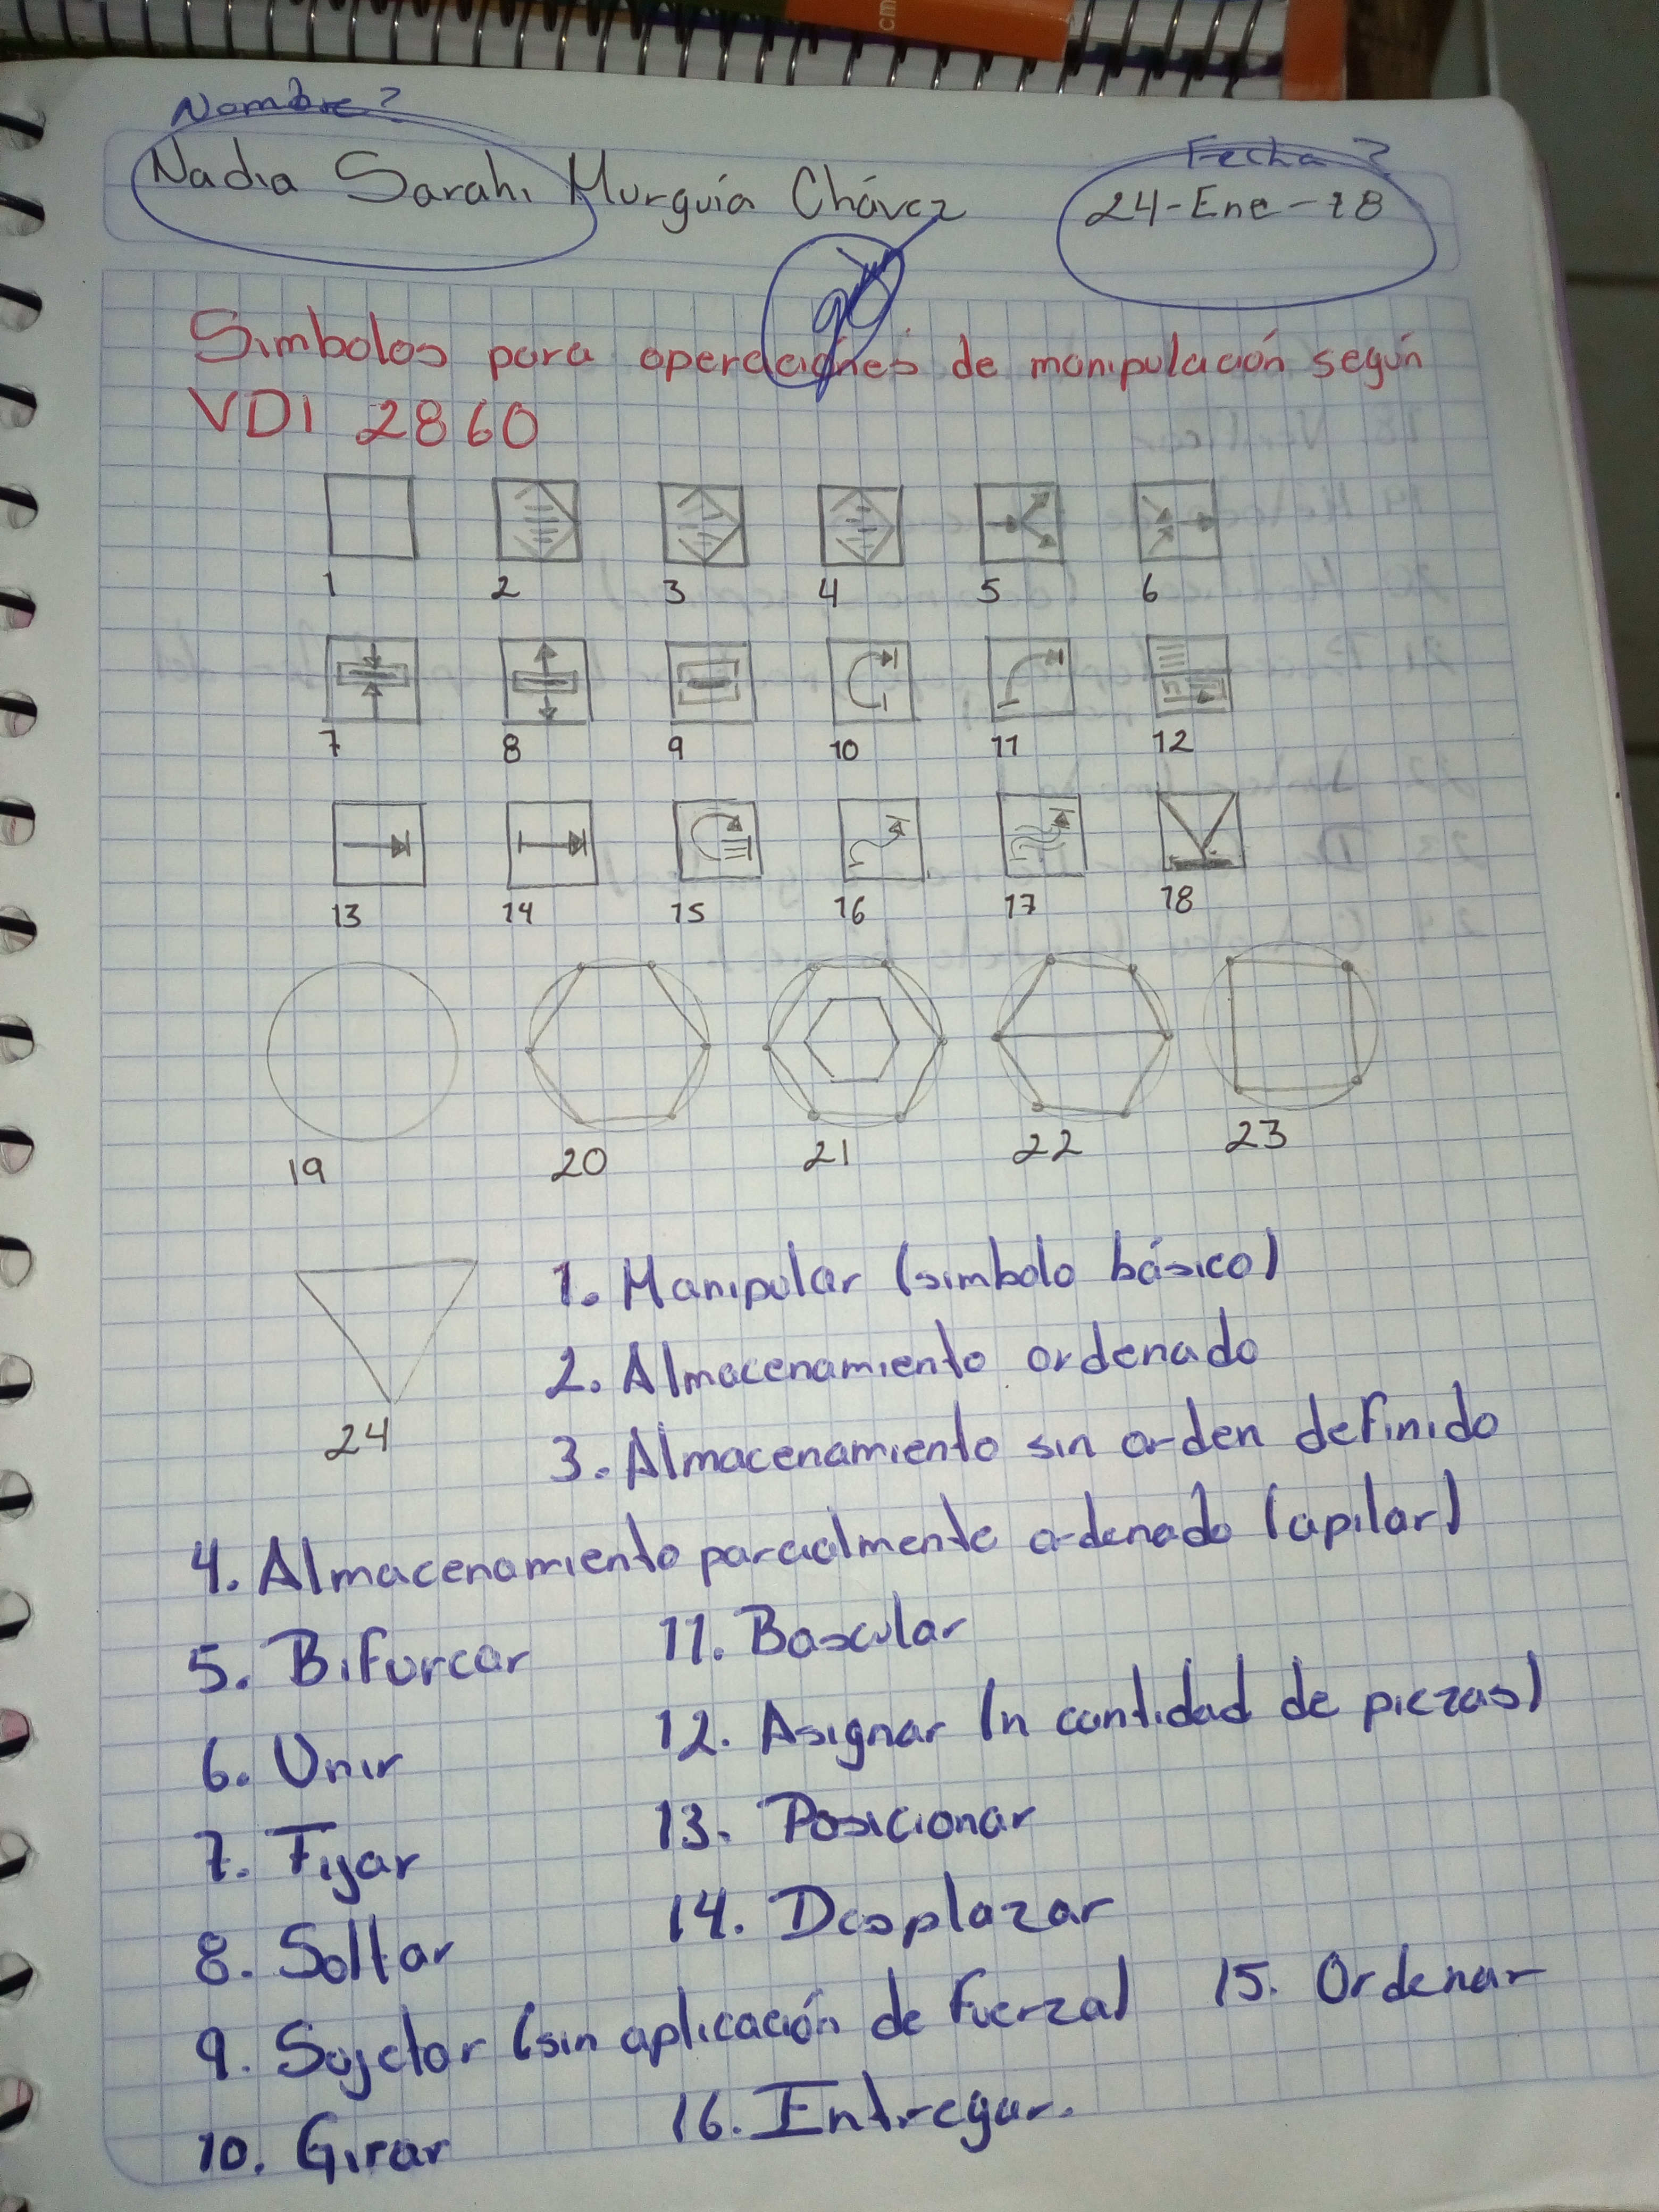 cm
Nombre?
Nadia Sarahi Murguía Chávez
Fecha?
24-Ene-18
Simbolos para operaciones de manipulación según
VDI 2860
1 2 3 4 5 6
7 8 9 10 11 12
13 14 15 16 17 18
19 20 21 22 23
24
1. Manipular (simbolo básico)
2. Almacenamiento ordenado
3. Almacenamiento sin orden definido
4. Almacenamiento parcialmente ordenado (apilar)
5. Bifurcar
6. Unir
7. Fijar
8. Soltar
9. Sujetar (sin aplicación de fuerza)
10. Girar
11. Bascular
12. Asignar (n cantidad de piezas)
13. Posicionar
14. Desplazar
15. Ordenar
16. Entregar.